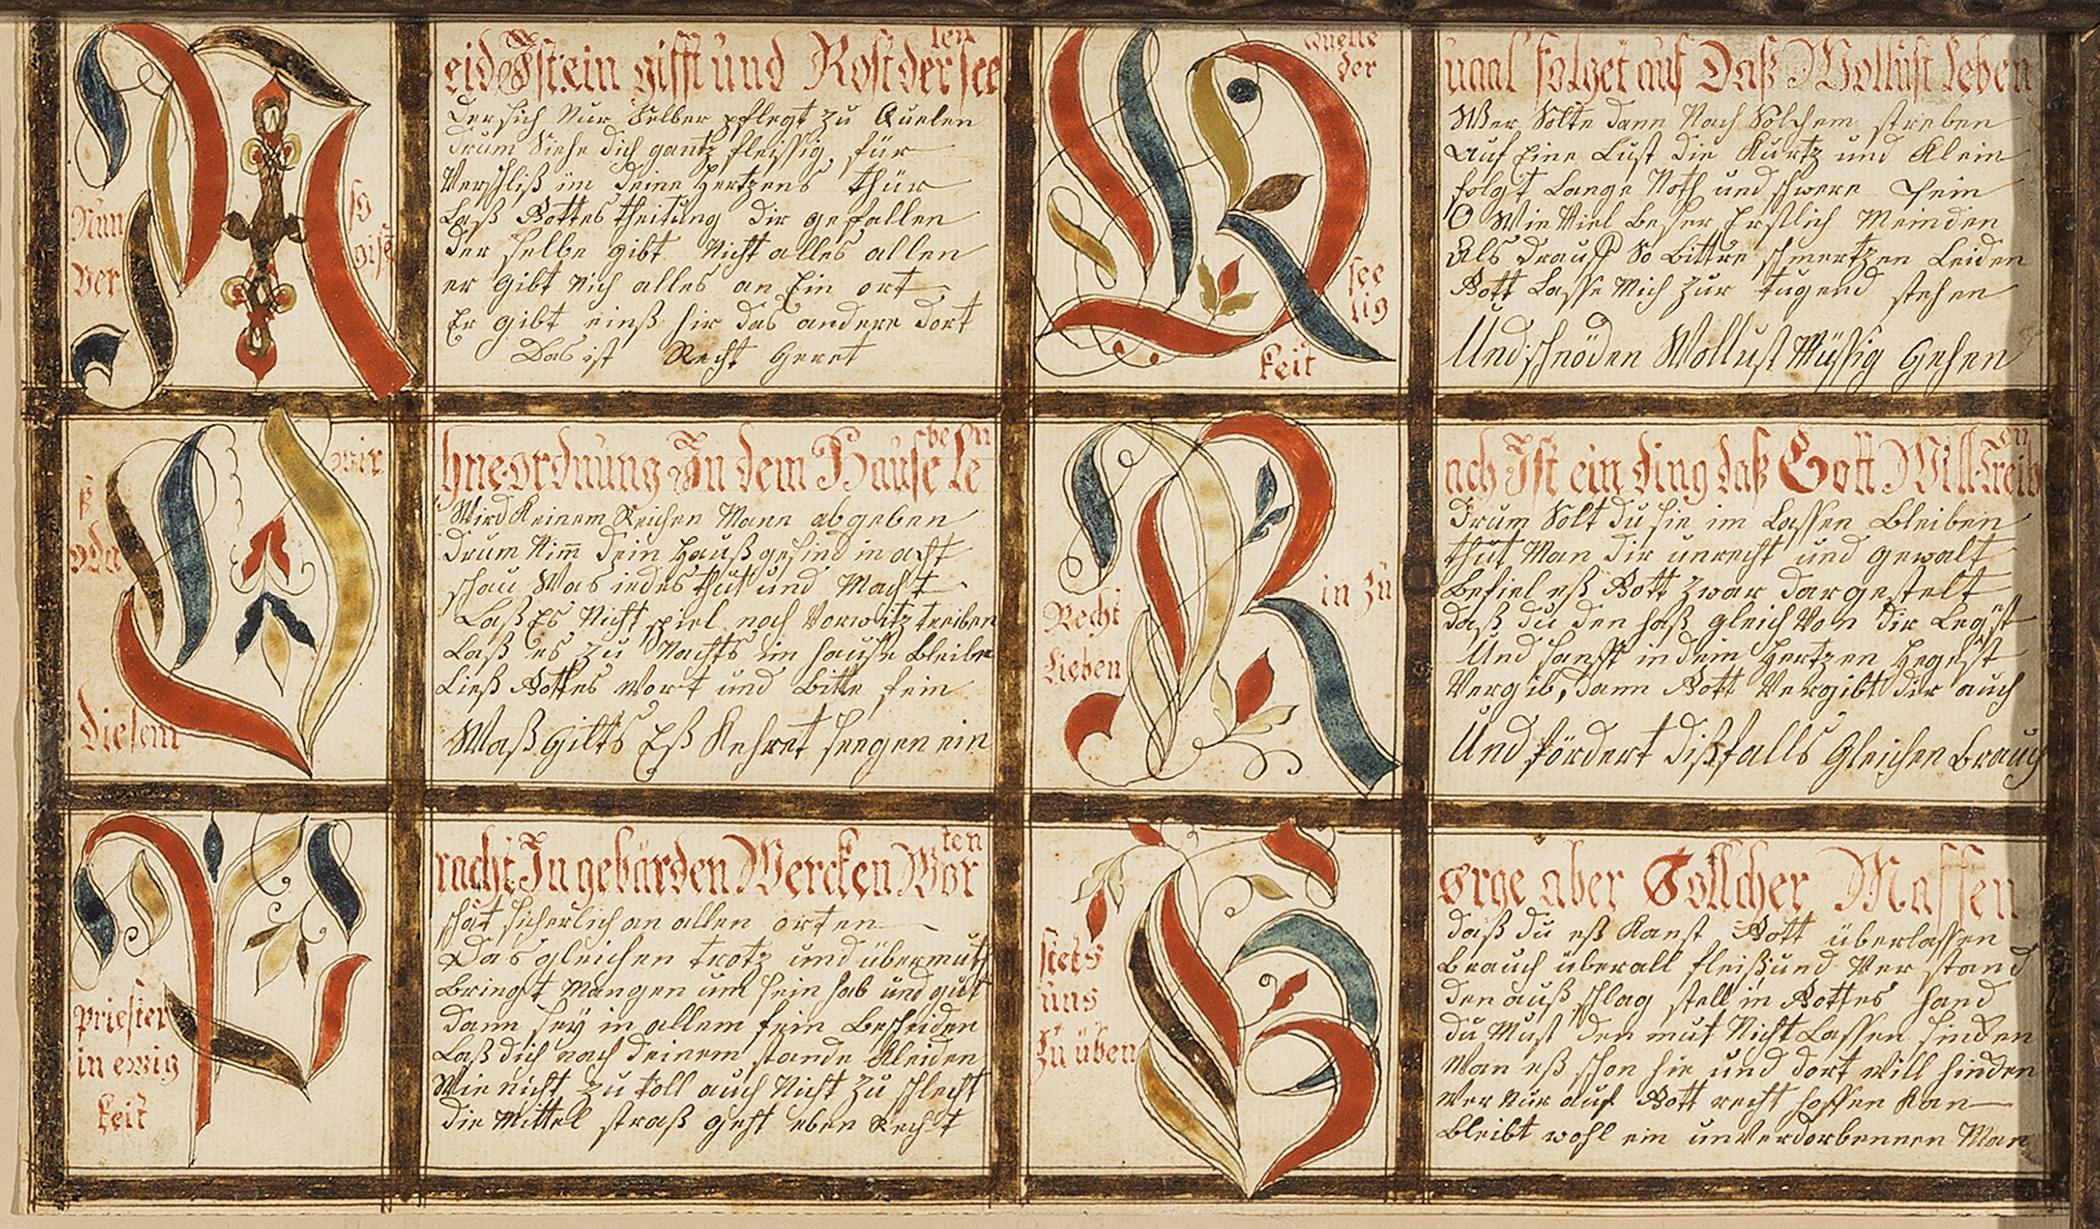 N
Nun
Ver
so
gist
eid Ist ein gifft und Rost der see
len
der sich Nur Selber pflegt zu Quelen
drum Siehe dich gantz fleissig für
Verschliß im deine Hertzens thür
Laß Gottes theilung dir gefallen
der selbe gibt Nicht alles allen
er gibt nich alles an Ein ort
Er gibt einß hir das andere dort
Das ist Recht Geret
Q
Quelle
der
see
lig
keit
uaal folget auf Daß Wollust leben
Wer Solte dann Nach Solchem streben
auf Eine Lust die Kurtz und Klein
folgt Lange Noth und schwere Pein
O Wie Viel beser Erstlich Meinden
Als drauff So bittre schmertzen Leiden
Gott Lasse Mich zur tugend stehen
Und schnöden Wollust Müssig Gehen
O
wir
ß
oda
diesem
hne ordnung In dem Hause le
ben
Wird Keinem Reichen Mann abgeben
drum Nim dein Hauß gesind in acht
schau Was iedes thut und Macht
Laß Es Nicht spiel noch Vorwitz treiben
Laß es zu Nachts im Hausse bleibe
Ließ Gottes Wort und Bitte fein
Waß Gilts Eß Kehret seegen ein
R
Recht
Lieben
in zu
ach Ist ein ding daß Gott Will treib
en
Drum Solt du sie im Lassen bleiben
thut Man dir unrecht und gewalt
Befiel eß Gott zwar dargestelt
daß du den haß gleich Von dir Legst
Und sanfft in dein Hertzen Hegest
Vergib, dann Gott Vergibt dir auch
Und fördert dißfalls Gleichen brauch
P
priester
in ewig
keit
racht In gebärden Wercken Wor
ten
schat sicherlich an allen orten
Das gleichen trotz und übermuth
bringt Mangen um sein hab und gut
dann sey in allem fein bescheiden
Laß dich nach deinem stande Kleiden
Wie nicht zu toll auch Nicht zu schlecht
die Mittel straß geht eben Recht
S
stets
uns
zu üben
orge aber Sollcher Massen
daß du eß Kanst Gott überlassen
brauch überall fleiß und Verstand
den auß schlag stell in Gottes Hand
du Must den mut Nicht Lassen sincken
Wan eß schon hie und dort will hincken
Wer Nur auf Gott recht hoffen Kan
bleibt wohl ein unVerdorbennen Man